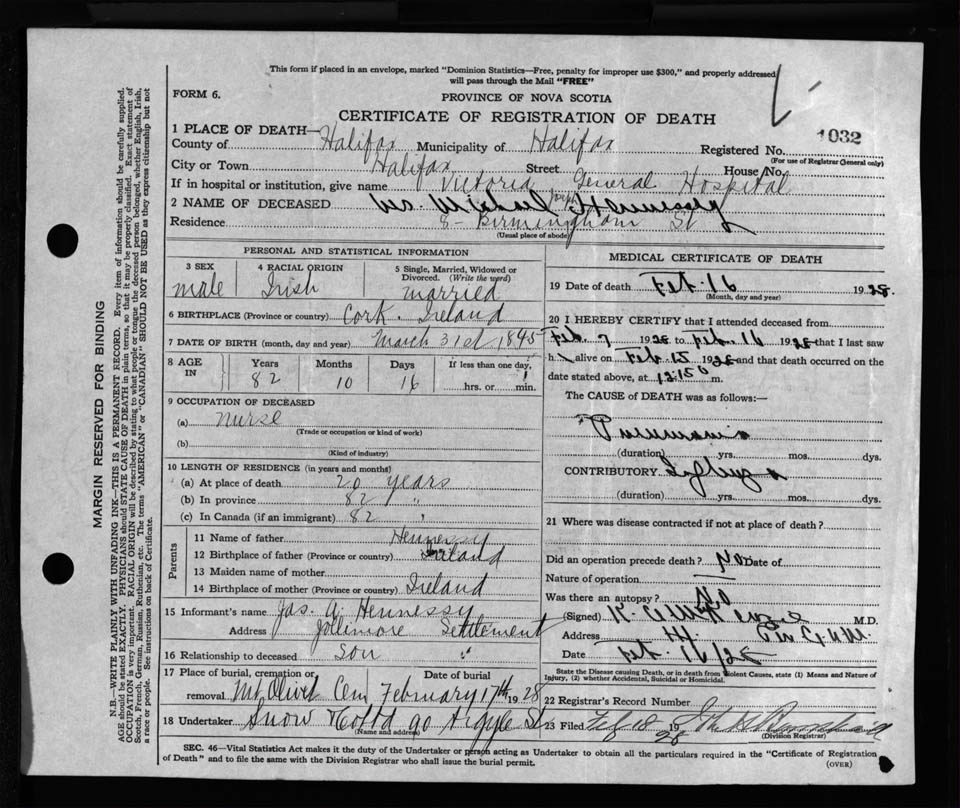 This form if placed in an envelope, marked "Dominion Statistics—Free, penalty for improper use $300," and properly addressed
will pass through the Mail "FREE"
FORM 6.
PROVINCE OF NOVA SCOTIA
CERTIFICATE OF REGISTRATION OF DEATH
1032
1 PLACE OF DEATH—
County of Halifax Municipality of Halifax Registered No.
(For use of Registrar General only)
City or Town Halifax Street House No.
If in hospital or institution, give name Victoria General Hospital
2 NAME OF DECEASED Michael Hennessy
Residence 8 - Birmingham St
(Usual place of abode)
PERSONAL AND STATISTICAL INFORMATION
3 SEX
male
4 RACIAL ORIGIN
Irish
5 Single, Married, Widowed or
Divorced. (Write the word)
married
6 BIRTHPLACE (Province or country) Cork. Ireland
7 DATE OF BIRTH (month, day and year) March 31st 1845
8 AGE
IN
Years Months Days If less than one day,
82 10 16 hrs. or min.
9 OCCUPATION OF DECEASED
(a) nurse
(Trade or occupation or kind of work)
(b)
(Kind of industry)
10 LENGTH OF RESIDENCE (in years and months)
(a) At place of death 20 years
(b) In province 82 "
(c) In Canada (if an immigrant) 82 "
Parents
11 Name of father Hennessy
12 Birthplace of father (Province or country) Ireland
13 Maiden name of mother
14 Birthplace of mother (Province or country) Ireland
15 Informant's name Jas. A. Hennessy
Address Jollimore Settlement
16 Relationship to deceased son
17 Place of burial, cremation or Date of burial
removal Mt. Olivet Cem February 17th 1928
18 Undertaker Snow & Co Ltd 90 Argyle St
(Name and address)
MEDICAL CERTIFICATE OF DEATH
19 Date of death Feb. 16 1928.
(Month, day and year)
20 I HEREBY CERTIFY that I attended deceased from
Feb. 7 1928 to Feb. 16 1928 that I last saw
h. alive on Feb. 15 1928 and that death occurred on the
date stated above, at 12.15 m.
The CAUSE of DEATH was as follows:—
Pneumonia
(duration) yrs. mos. dys.
CONTRIBUTORY Influenza
(duration) yrs. mos. dys.
21 Where was disease contracted if not at place of death?
Did an operation precede death? No Date of
Nature of operation
Was there an autopsy? No
(Signed) M.D.
Address
Date Feb. 16/28
State the Disease causing Death, or in death from Violent Causes, state (1) Means and Nature of
Injury, (2) whether Accidental, Suicidal or Homicidal.
22 Registrar's Record Number
23 Filed Feb 18 1928
(Division Registrar)
SEC. 46—Vital Statistics Act makes it the duty of the Undertaker or person acting as Undertaker to obtain all the particulars required in the "Certificate of Registration
of Death" and to file the same with the Division Registrar who shall issue the burial permit.
(OVER)
MARGIN RESERVED FOR BINDING
N.B.—WRITE PLAINLY WITH UNFADING INK—THIS IS A PERMANENT RECORD. Every item of information should be carefully supplied.
AGE should be stated EXACTLY. PHYSICIANS should STATE CAUSE OF DEATH in plain terms, so that it may be properly classified. Exact statement of
OCCUPATION is very important. RACIAL ORIGIN will be described by stating to what people or tongue the deceased person belonged, whether English, Irish,
Scotch, French, German, Russian, Ruthenian, etc. The terms "AMERICAN" or "CANADIAN" SHOULD NOT BE USED as they express citizenship but not
a race or people. See instructions on back of Certificate.